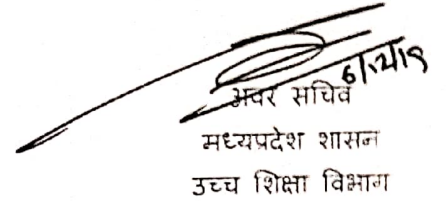 6/12/19
अवर सचिव
मध्यप्रदेश शासन
उच्च शिक्षा विभाग